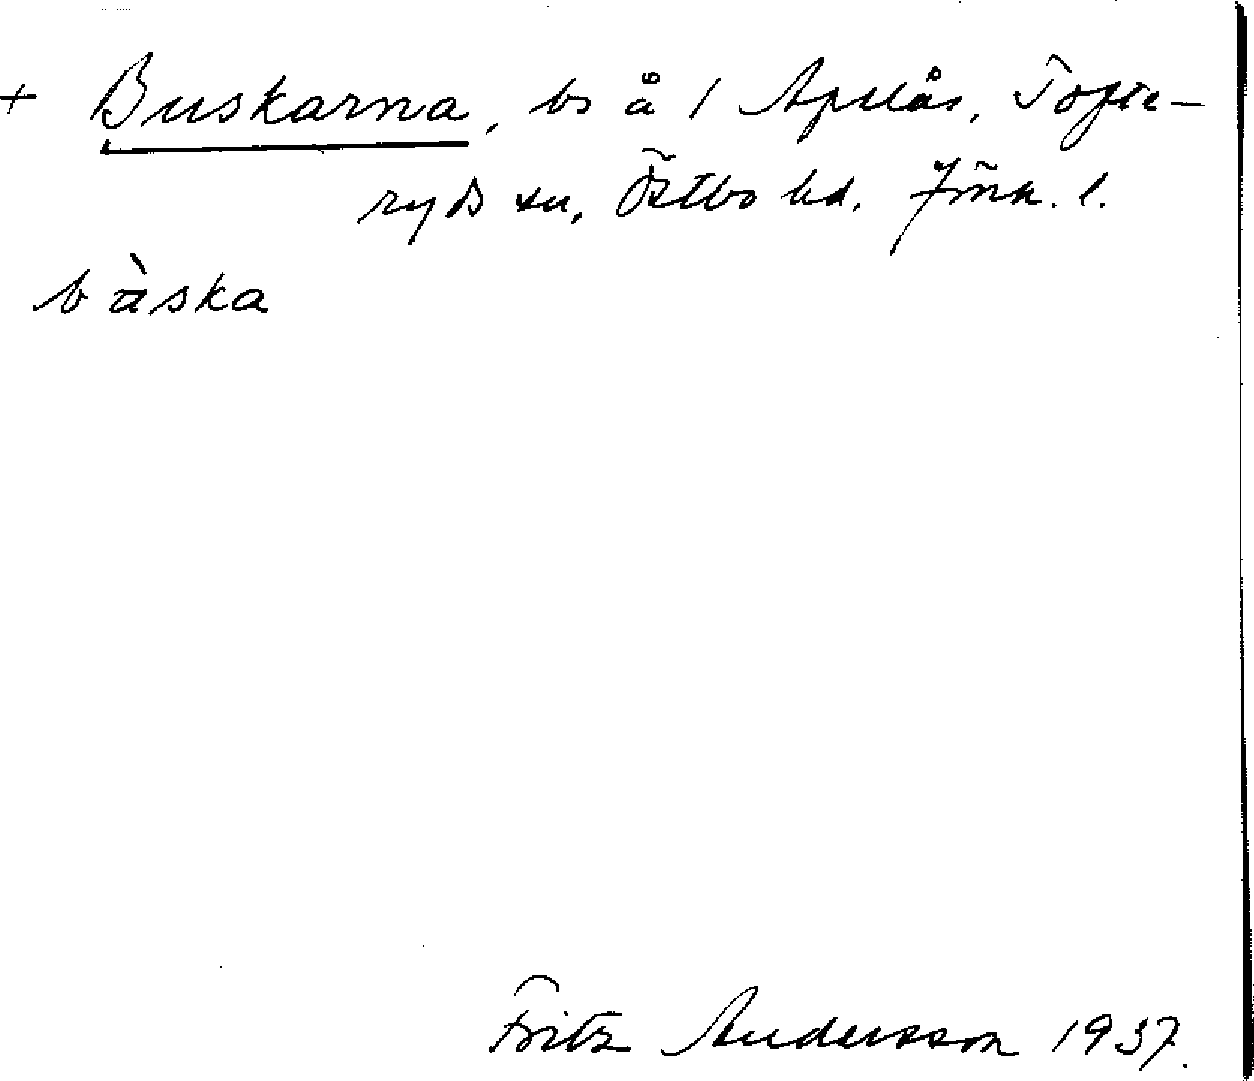 + Buskarna, bs å 1 Apelås, Tofte-
ryds sn, Östbo hd. Jönk. l.
bàska
Fritz Andersson 1937.